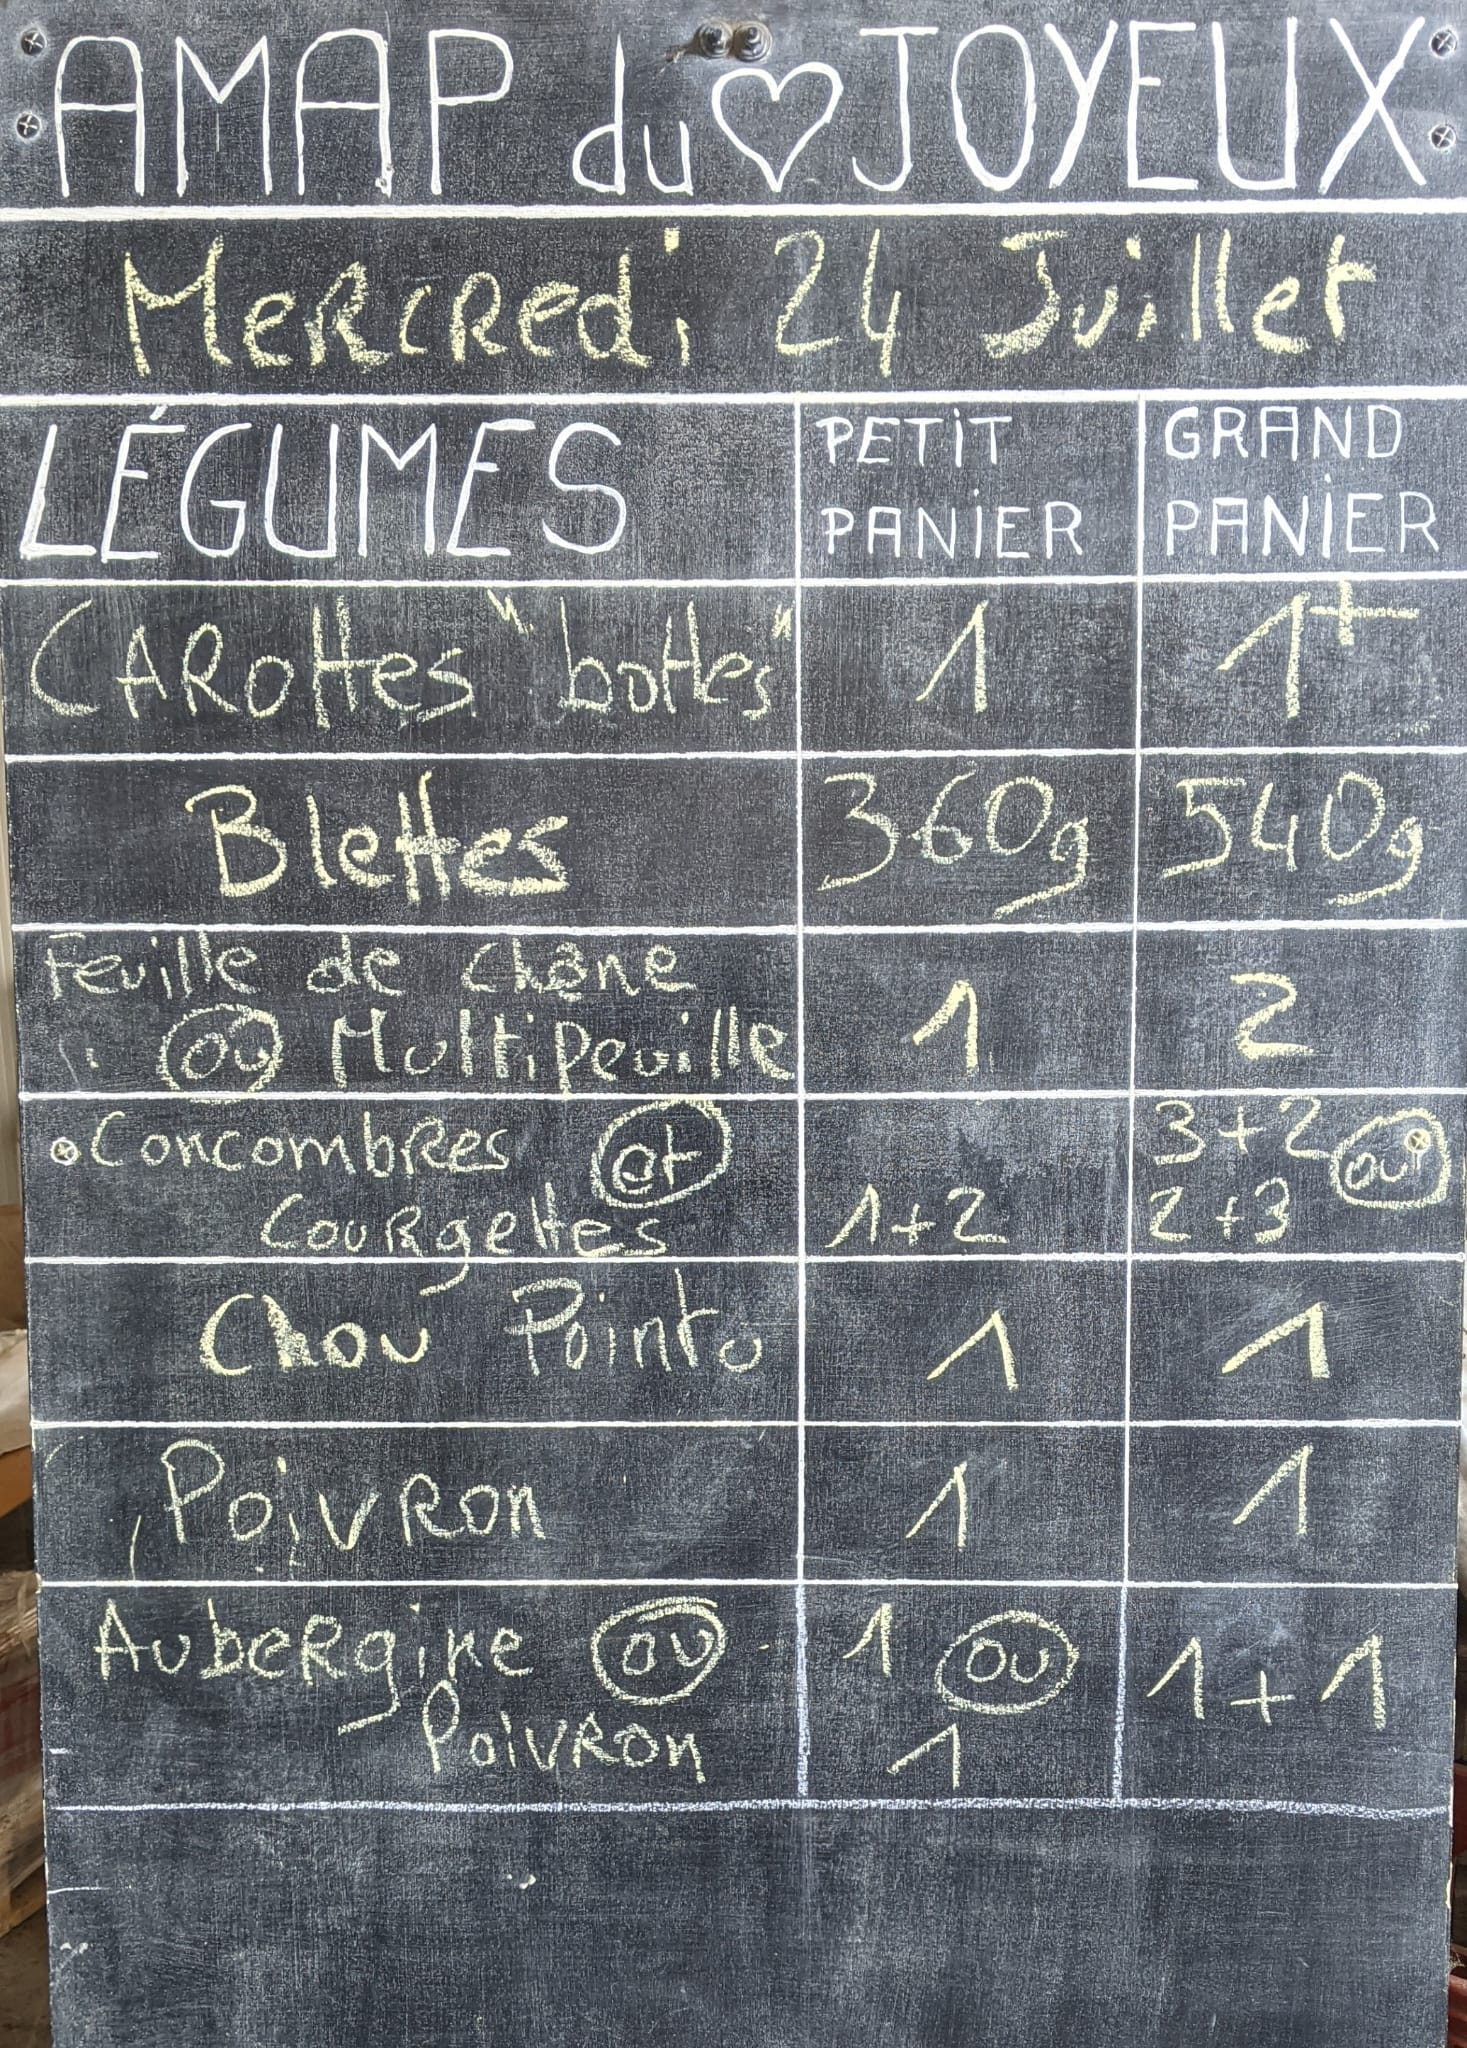 AMAP du ♡ JOYEUX
Mercredi 24 Juillet
LÉGUMES PETIT PANIER GRAND PANIER
CAROTTES "bottes" 1 1+
Blettes 360g 540g
Feuille de chêne
ou Multifeuille 1 2
Concombres et 3+2 ou
Courgettes 1+2 2+3
Chou Pointu 1 1
Poivron 1 1
Aubergine ou 1 ou 1+1
Poivron 1